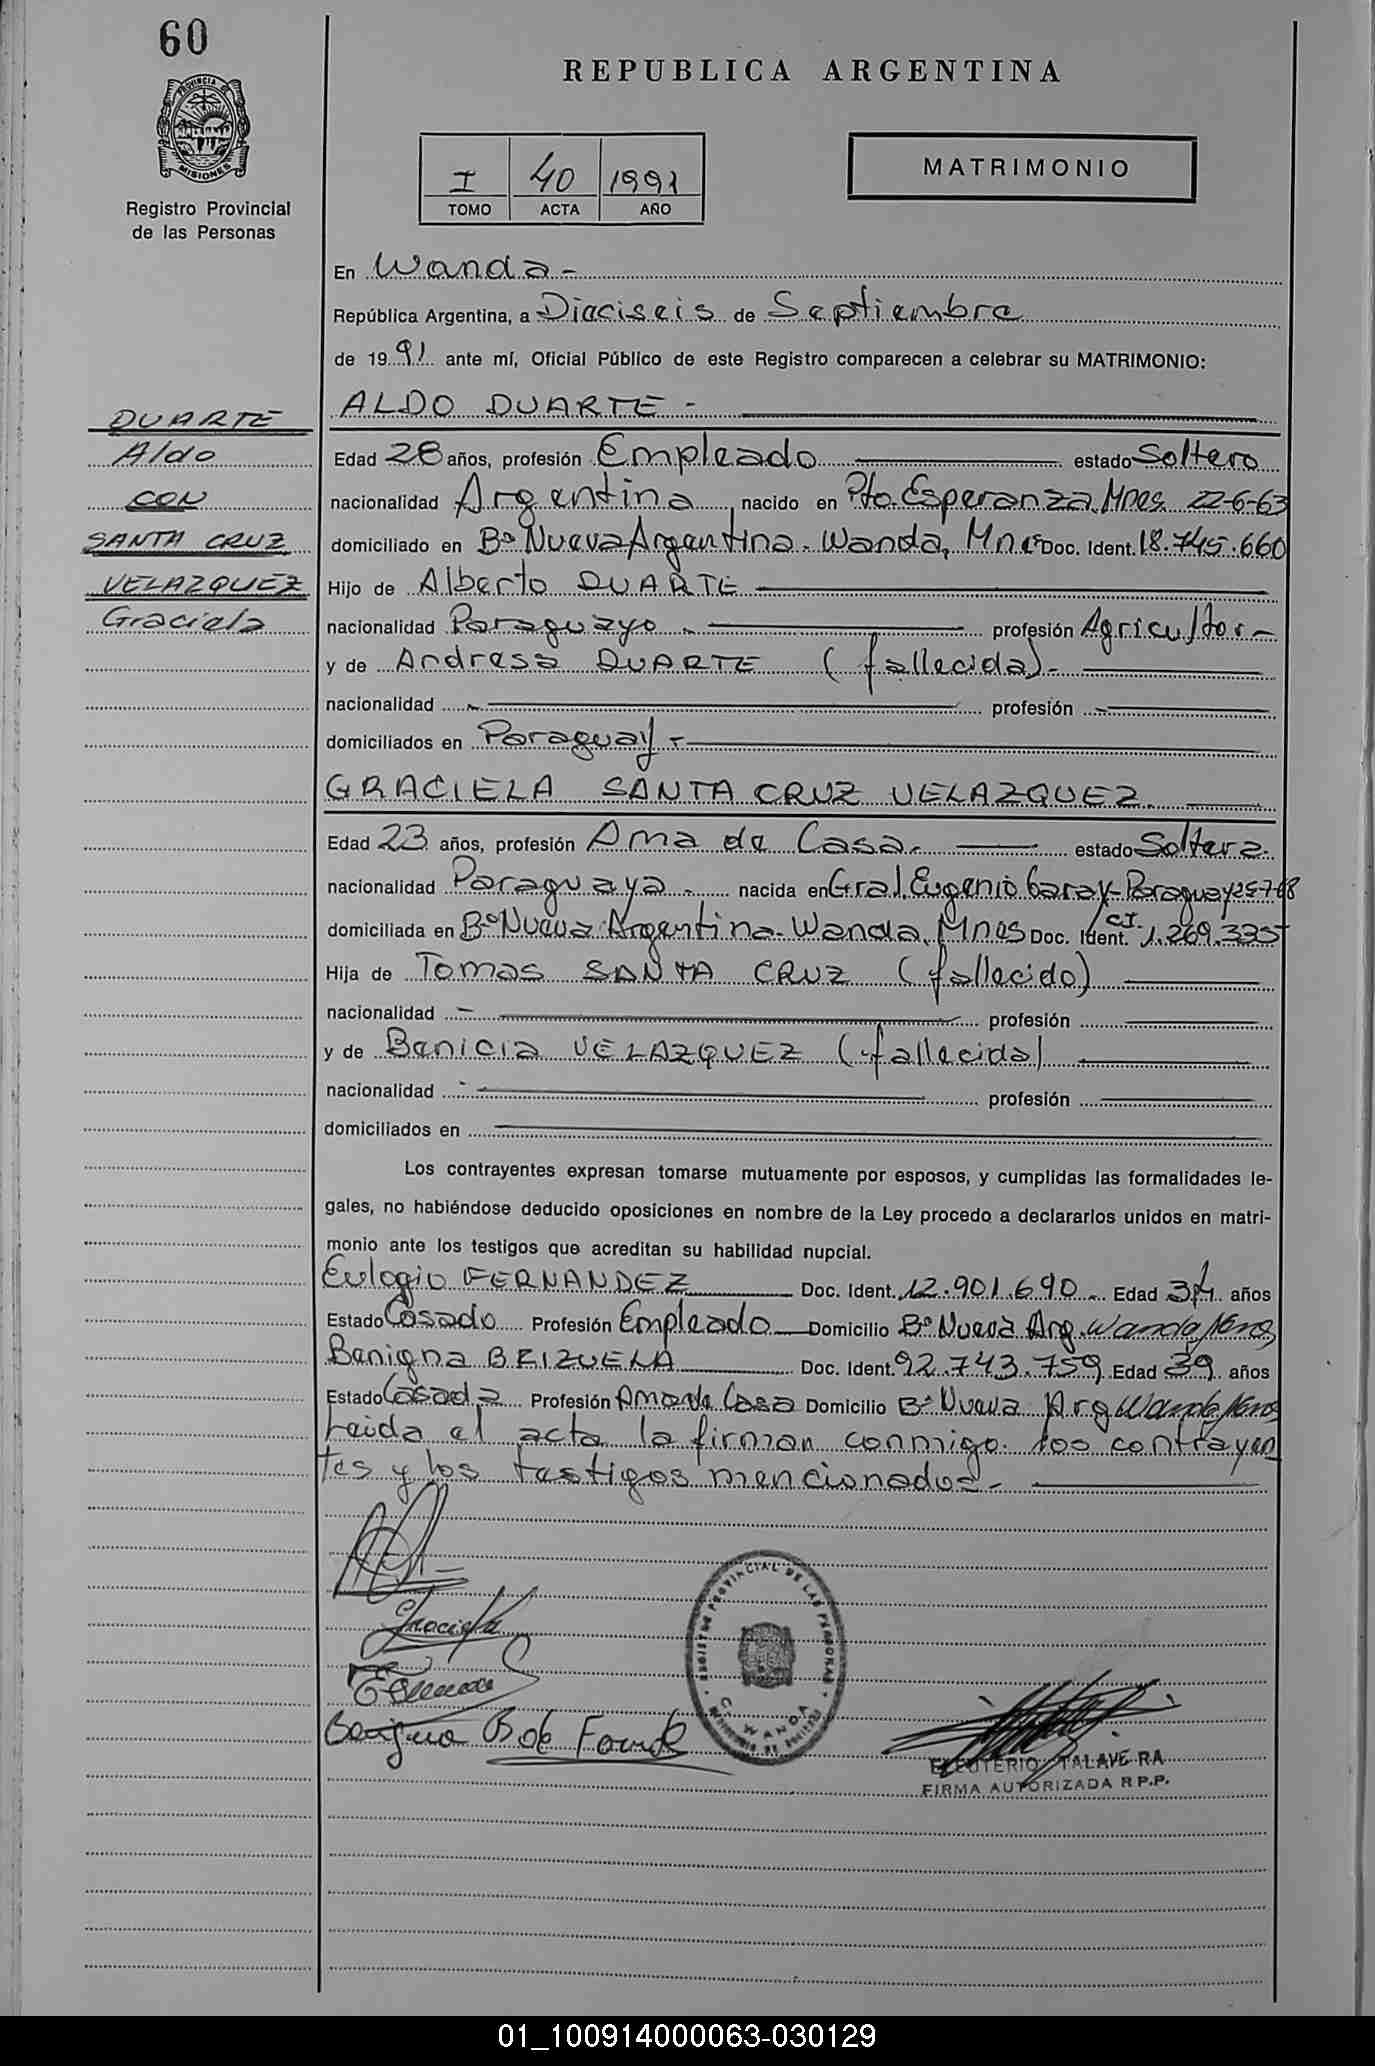 60
PROVINCIA DE
MISIONES
Registro Provincial
de las Personas
REPUBLICA ARGENTINA
I 40 1991
TOMO ACTA AÑO
MATRIMONIO
En Wanda-
República Argentina, a Dieciseis de Septiembre
de 1991 ante mí, Oficial Público de este Registro comparecen a celebrar su MATRIMONIO:
DUARTE
Aldo
CON
SANTA CRUZ
VELAZQUEZ
Graciela
ALDO DUARTE -
Edad 28 años, profesión Empleado estado Soltero
nacionalidad Argentina nacido en Pto. Esperanza, Mnes. 22-6-63
domiciliado en Bº Nueva Argentina. Wanda, Mnes Doc. Ident. 18.745.660
Hijo de Alberto DUARTE
nacionalidad Paraguayo - profesión Agricultor-
y de Andresa DUARTE (fallecida)-
nacionalidad - profesión -
domiciliados en Paraguay-
GRACIELA SANTA CRUZ VELAZQUEZ
Edad 23 años, profesión Ama de Casa. estado Soltera.
nacionalidad Paraguaya - nacida en Gral. Eugenio Garay-Paraguay 25-7-68
domiciliada en Bº Nueva Argentina. Wanda, Mnes Doc. Ident. C.I. 1.269.335
Hija de Tomas SANTA CRUZ (fallecido)
nacionalidad - profesión
y de Benicia VELAZQUEZ (fallecida)
nacionalidad - profesión
domiciliados en
Los contrayentes expresan tomarse mutuamente por esposos, y cumplidas las formalidades le-
gales, no habiéndose deducido oposiciones en nombre de la Ley procedo a declararlos unidos en matri-
monio ante los testigos que acreditan su habilidad nupcial.
Eulogio FERNANDEZ Doc. Ident. 12.901.690 - Edad 34 años
Estado Casado Profesión Empleado Domicilio Bº Nueva Arg. Wanda Mnes
Benigna BRIZUELA Doc. Ident. 92.743.759 Edad 39 años
Estado Casada Profesión Ama de Casa Domicilio Bº Nueva Arg Wanda Mnes
Leida el acta la firman conmigo los contrayen
tes y los testigos mencionados-
Graciela
Benigna B de
REGISTRO PROVINCIAL DE LAS PERSONAS
WANDA
ELEUTERIO TALAVERA
FIRMA AUTORIZADA R P.P.
01_100914000063-030129